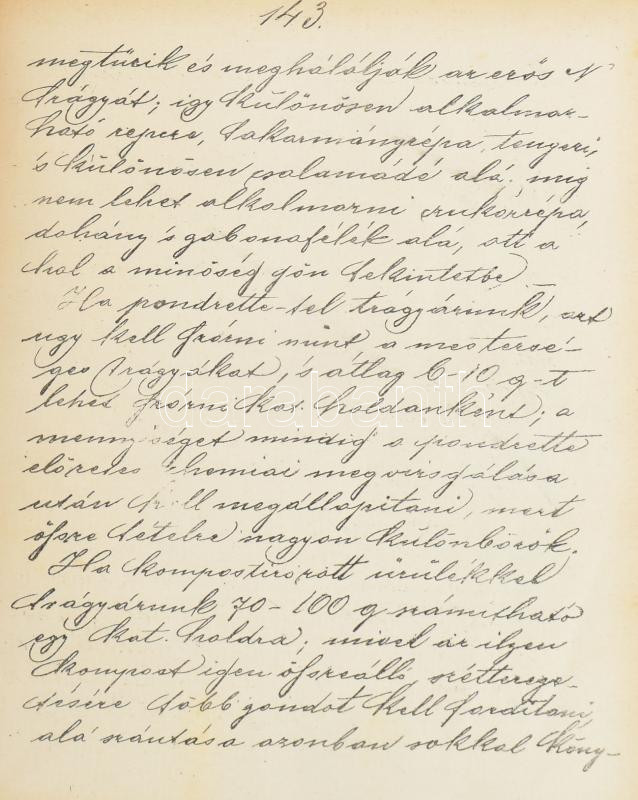 143.
megtűrik és meghálálják az erős N
trágyát; igy különösen alkalmaz-
ható repcze, takarmányrépa, tengeri,
's különösen csalamádé alá; mig
nem lehet alkolmazni czukorrépa,
dohány 's gabonafélék alá, ott a
hol a minőség jön tekintetbe.
Ha pondrette-tel tragyázunk, azt
ugy kell szórni mint a mestersé-
ges trágyákat, 's átlag 6-10 q-t
lehet szórni kat. holdanként; a
mennyiséget mindig a pondrette
előzetes chemiai megvizsgálása
után kell megállapitani, mert
öszve tételre nagyon különbözők.
Ha kompostirozott ürülékkel
trágyázunk 70-100 q számitható
egy kat. holdra; mivel az ilyen
kompost igen öszveálló, szétterege-
tésére több gondot kell forditani,
alá szántása azonban sokkal köny-
darabanth